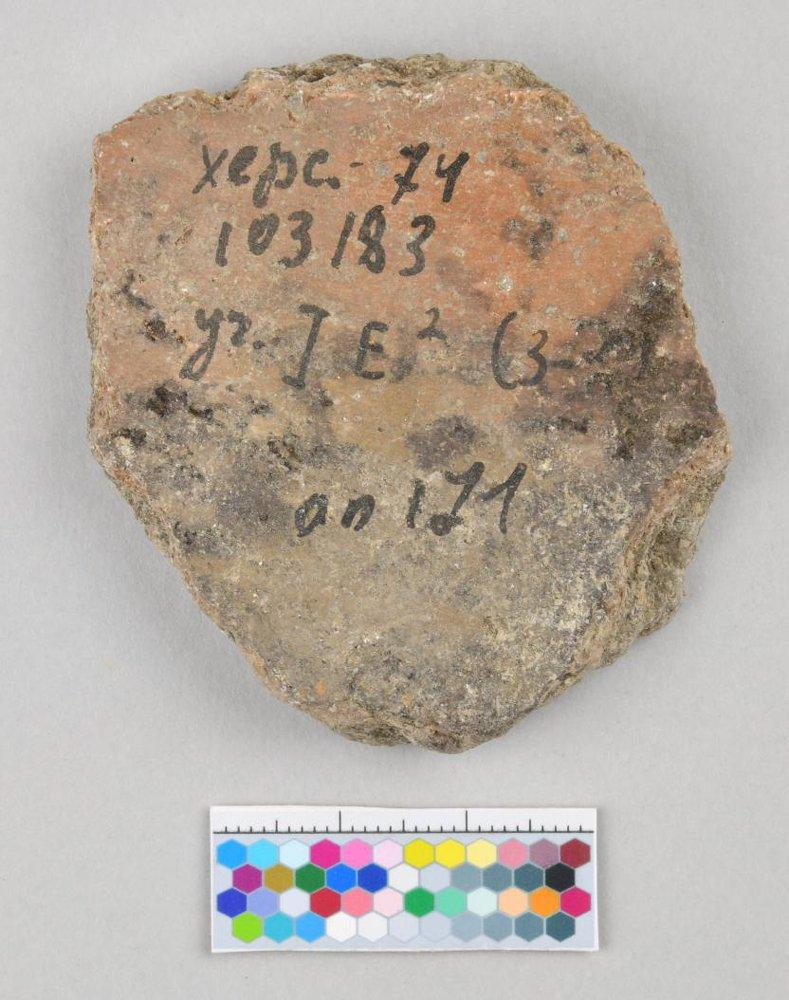 херс. - 74
103183
уч. I Е² (3-
оп 171